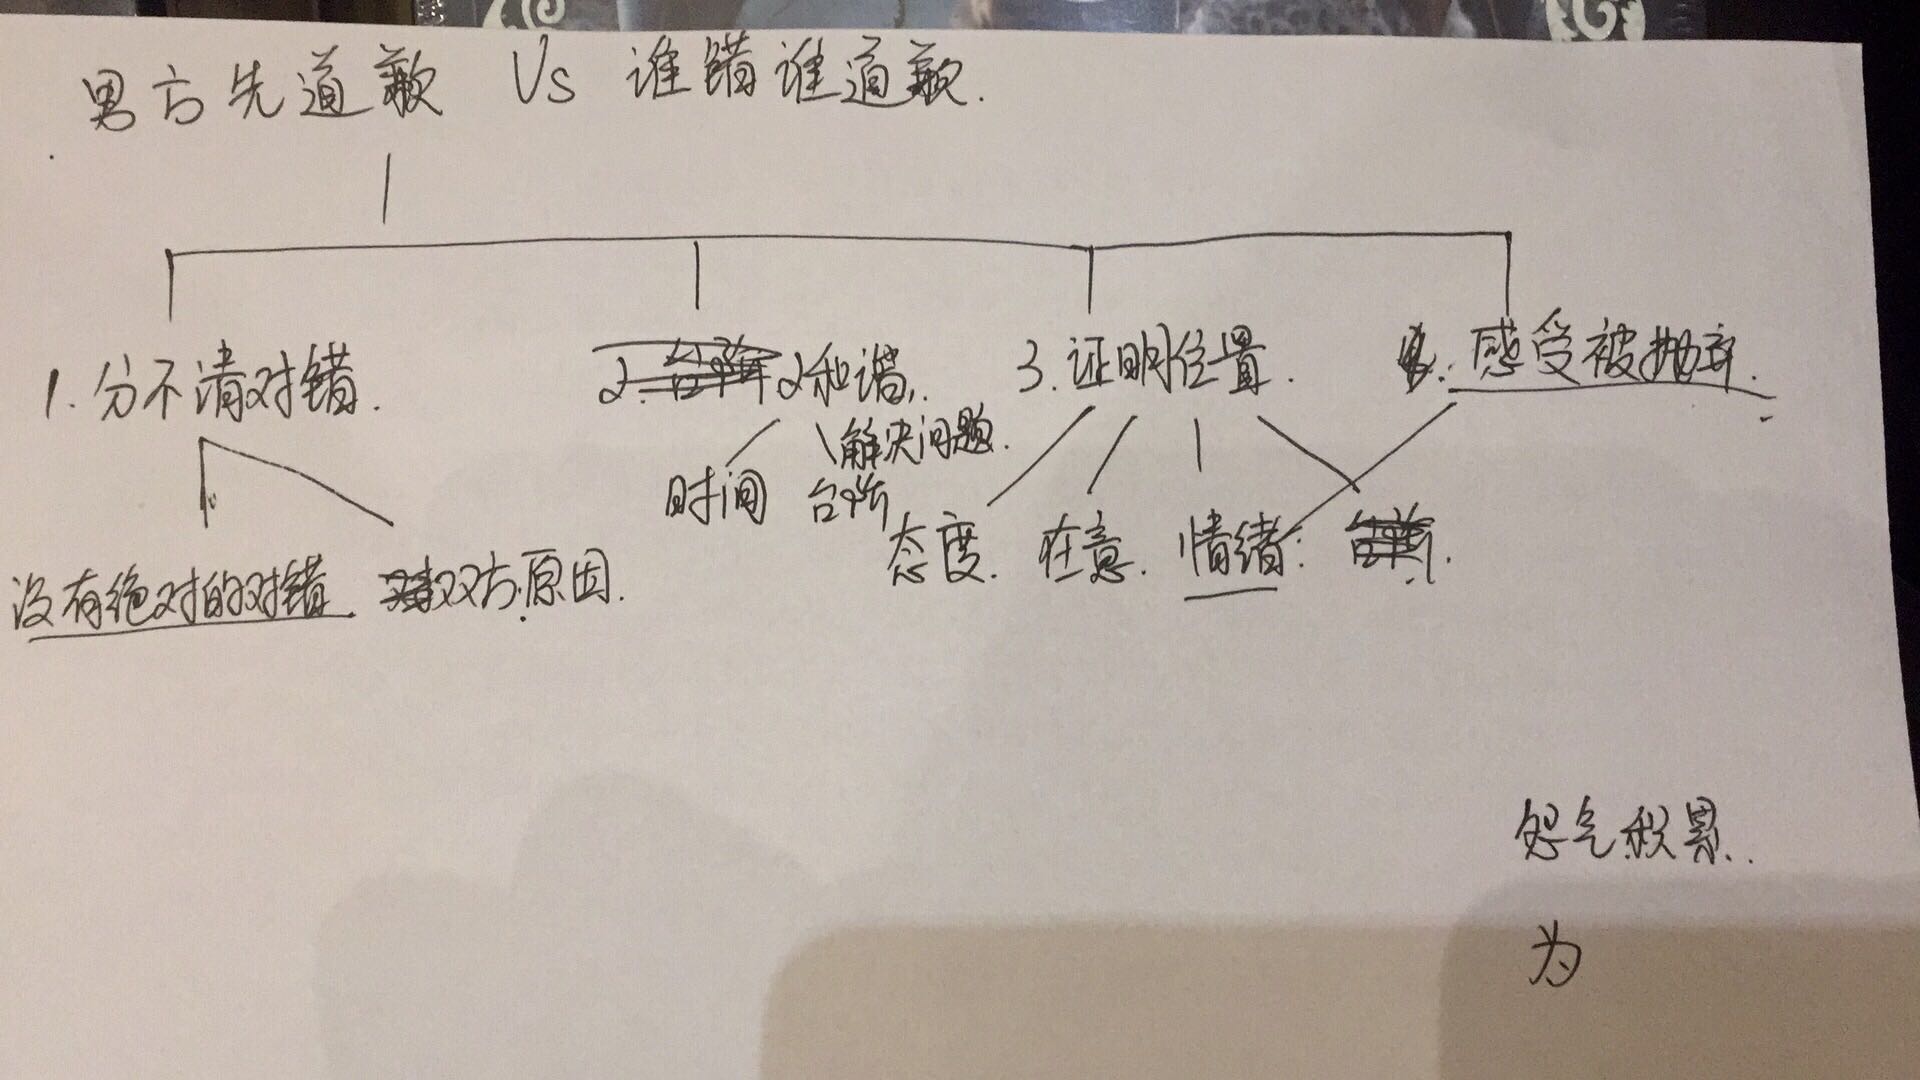 男方先道歉 Vs 谁错谁道歉.
1. 分不清对错. 2和谐. 3. 证明位置. 感受被抛弃.
解决问题.
时间 台阶
态度. 在意. 情绪.
没有绝对的对错. 双方原因.
怨气积累.
为